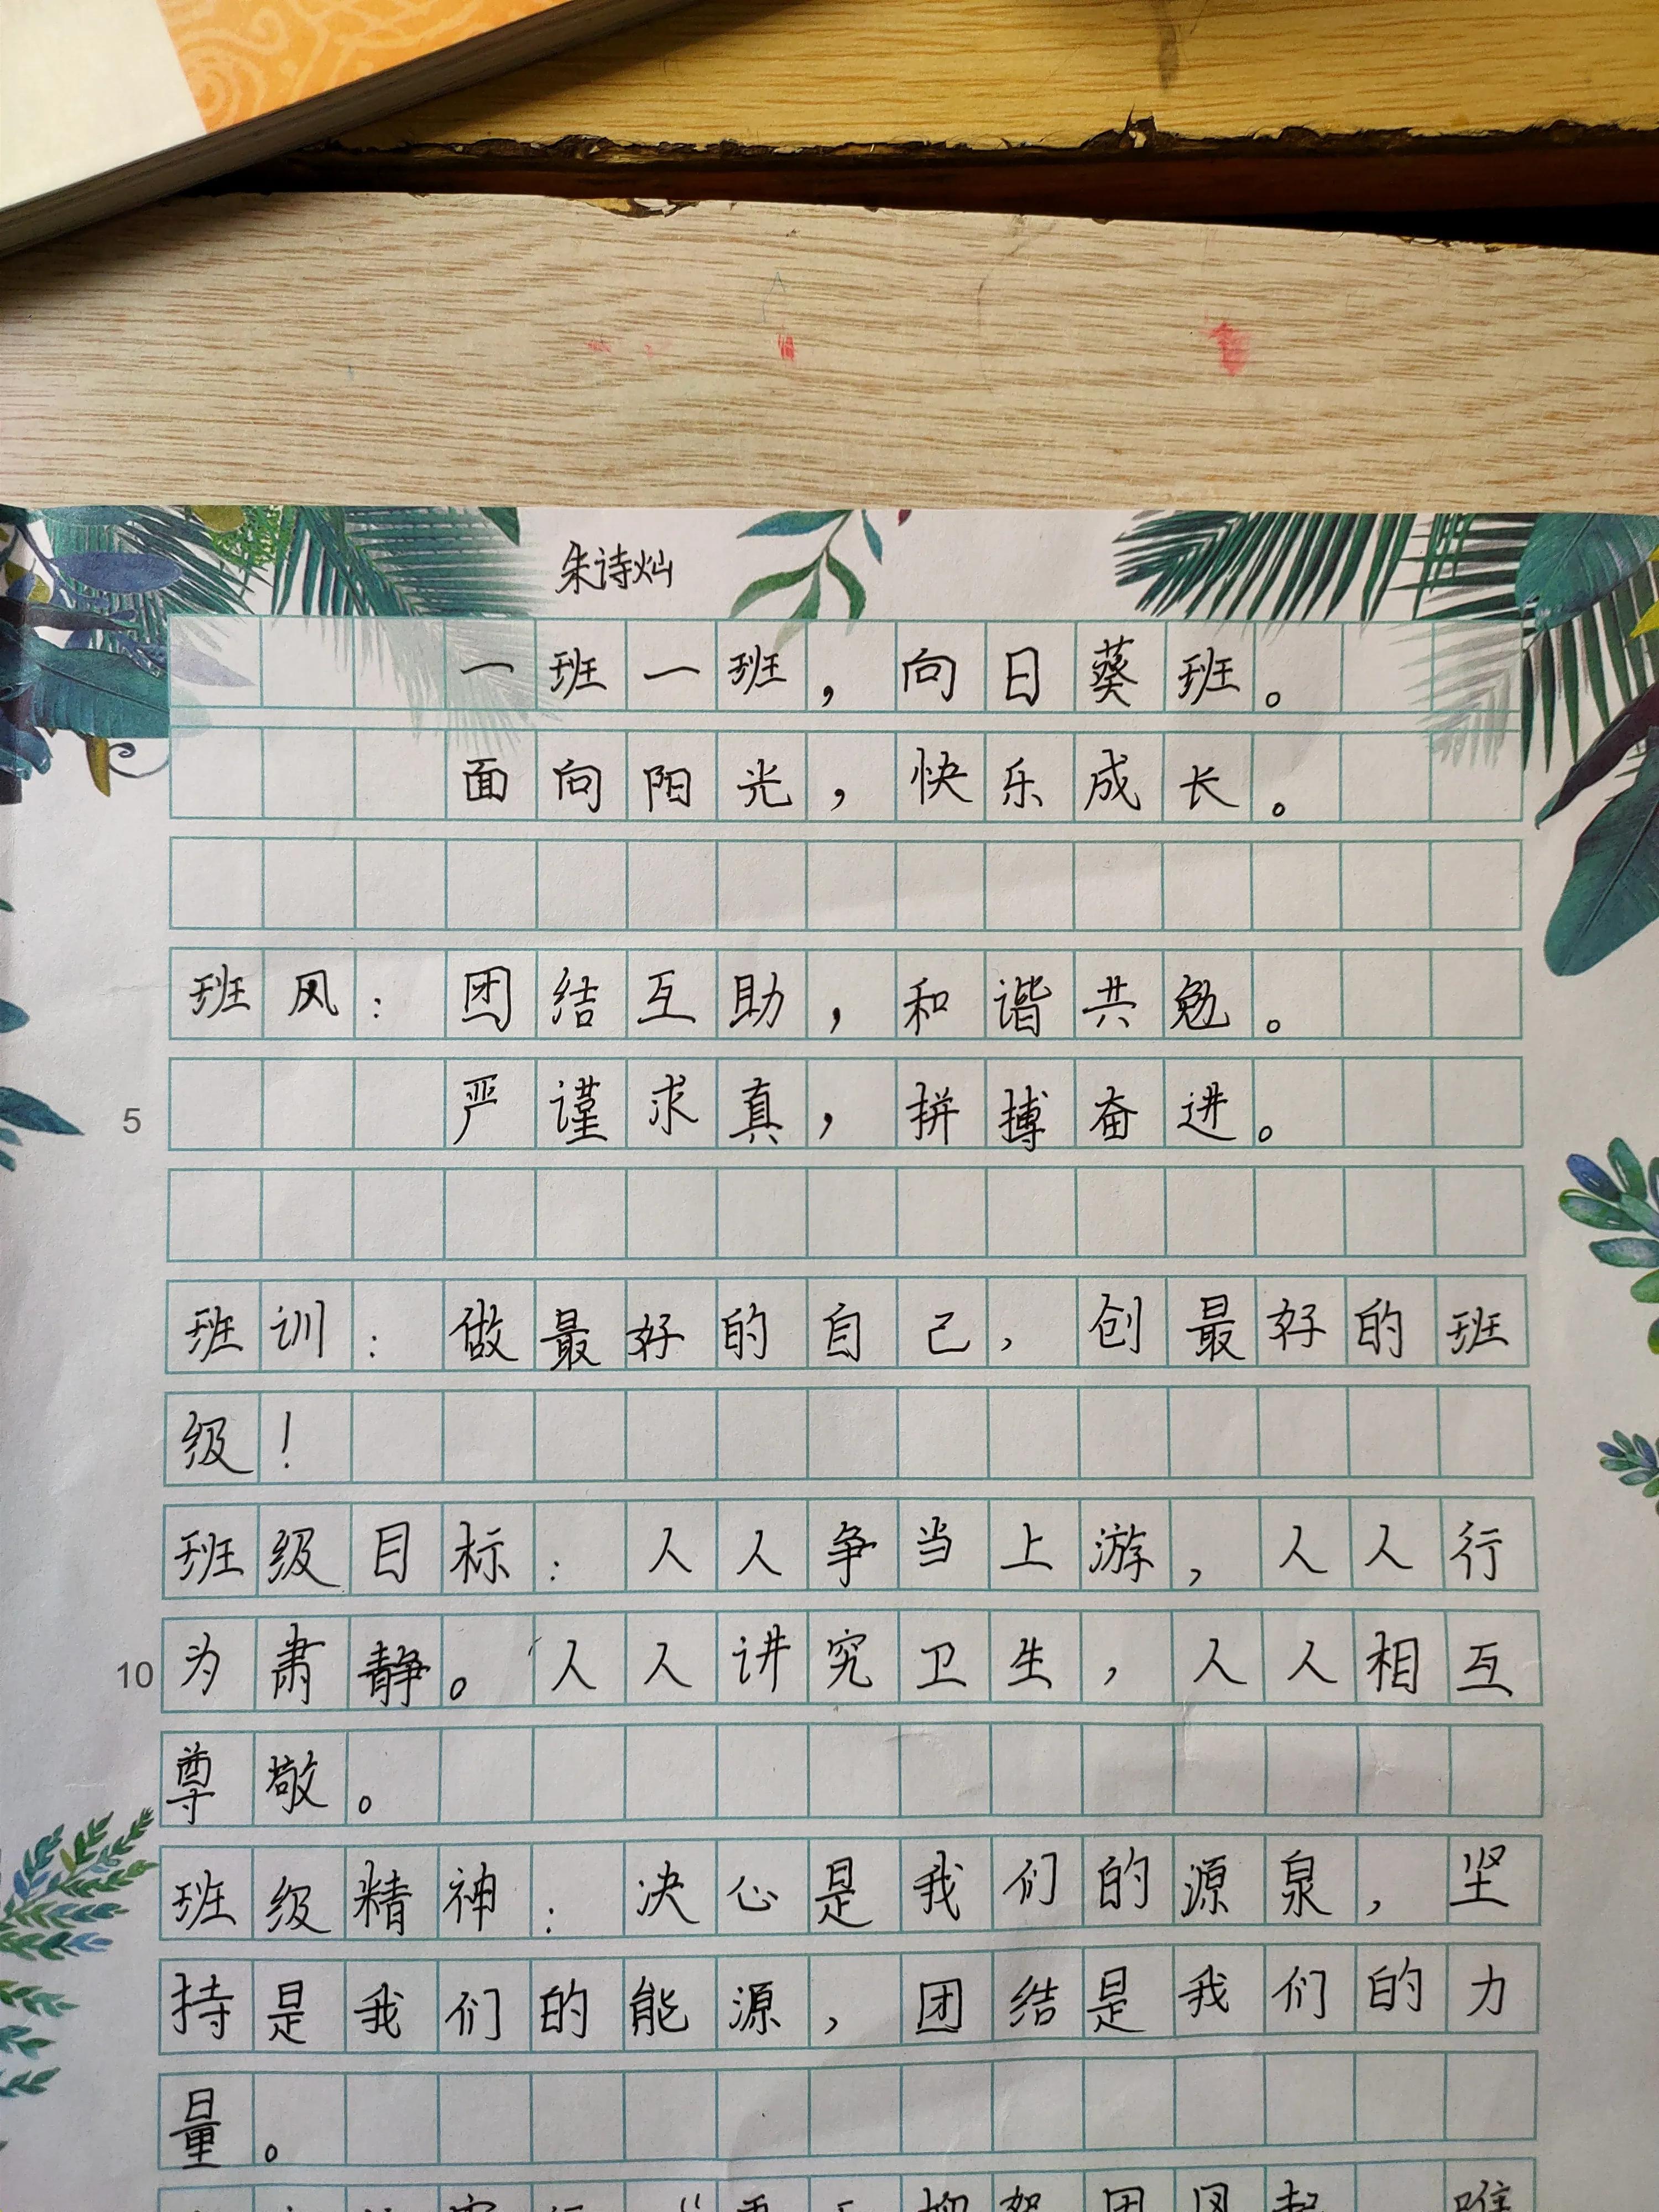 朱诗灿
一班一班，向日葵班。
面向阳光，快乐成长。
班风：团结互助，和谐共勉。
5
严谨求真，拼搏奋进。
班训：做最好的自己，创最好的班
级！
班级目标：人人争当上游，人人行
10
为肃静。人人讲究卫生，人人相互
尊敬。
班级精神：决心是我们的源泉，坚
持是我们的能源，团结是我们的力
量。